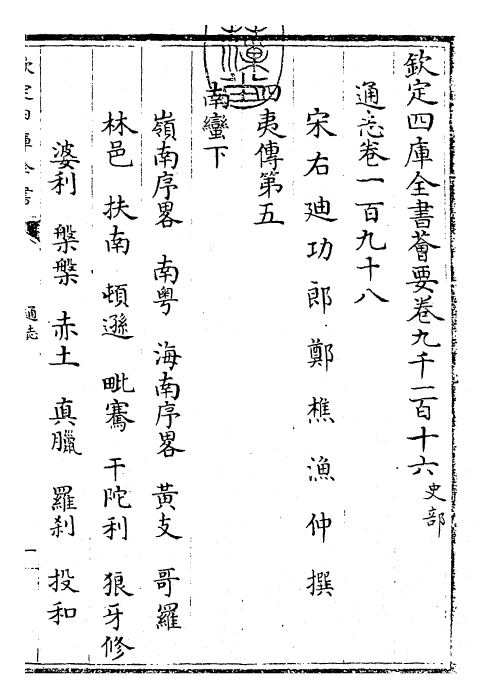 欽定四庫全書薈要卷九千一百十六 史部
通志卷一百九十八
宋右迪功郎鄭樵漁仲撰
四夷傳第五
南蠻下
嶺南序畧 南粤 海南序畧 黃支 哥羅
林邑 扶南 頓遜 毗騫 干陀利 狼牙修
婆利 槃槃 赤土 真臘 羅刹 投和
欽定四庫全書
通志
一